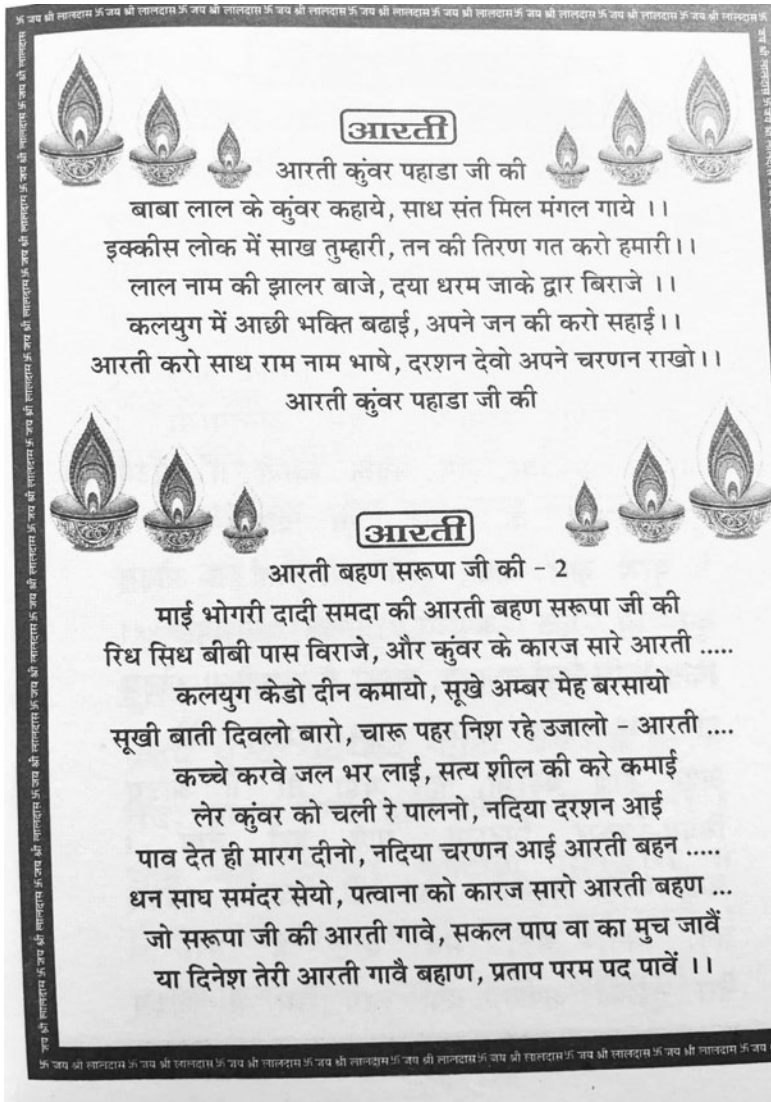 卐 जय श्री लालदास 卐 जय श्री लालदास 卐 जय श्री लालदास 卐 जय श्री लालदास 卐 जय श्री लालदास 卐 जय श्री लालदास 卐 जय श्री लालदास 卐
आरती
आरती कुंवर पहाडा जी की
बाबा लाल के कुंवर कहाये, साध संत मिल मंगल गाये ।।
इक्कीस लोक में साख तुम्हारी, तन की तिरण गत करो हमारी।।
लाल नाम की झालर बाजे, दया धरम जाके द्वार बिराजे ।।
कलयुग में आछी भक्ति बढाई, अपने जन की करो सहाई।।
आरती करो साध राम नाम भाषे, दरशन देवो अपने चरणन राखो।।
आरती कुंवर पहाडा जी की
आरती
आरती बहण सरूपा जी की - 2
माई भोगरी दादी समदा की आरती बहण सरूपा जी की
रिध सिध बीबी पास विराजे, और कुंवर के कारज सारे आरती .....
कलयुग केडो दीन कमायो, सूखे अम्बर मेह बरसायो
सूखी बाती दिवलो बारो, चारू पहर निश रहे उजालो - आरती ....
कच्चे करवे जल भर लाई, सत्य शील की करे कमाई
लेर कुंवर को चली रे पालनो, नदिया दरशन आई
पाव देत ही मारग दीनो, नदिया चरणन आई आरती बहन .....
धन साघ समंदर सेयो, पत्वाना को कारज सारो आरती बहण ...
जो सरूपा जी की आरती गावे, सकल पाप वा का मुच जावैं
या दिनेश तेरी आरती गावै बहाण, प्रताप परम पद पावें ।।
卐 जय श्री लालदास 卐 जय श्री लालदास 卐 जय श्री लालदास 卐 जय श्री लालदास 卐 जय श्री लालदास 卐 जय श्री लालदास 卐 जय श्री लालदास 卐 जय